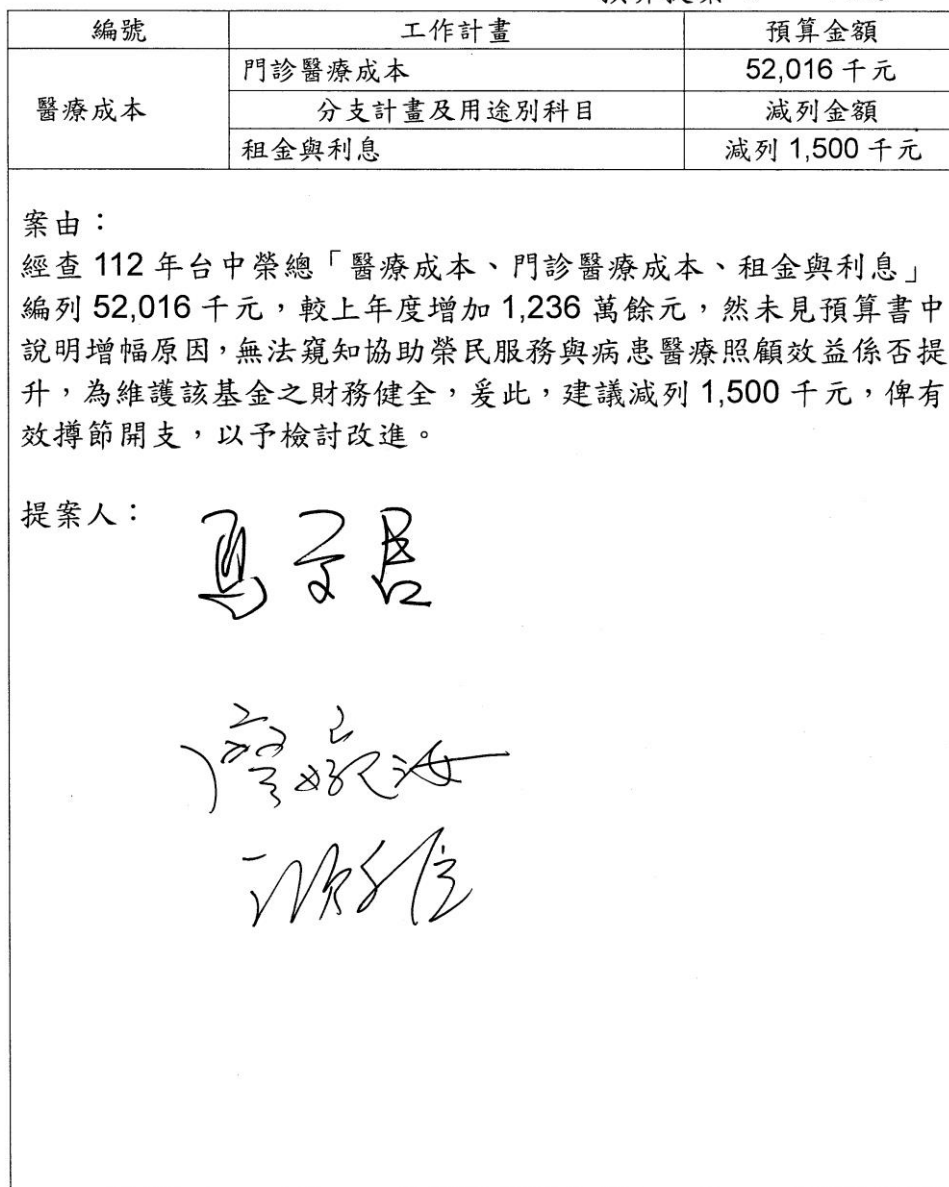 編號 工作計畫 預算金額
醫療成本 門診醫療成本 52,016 千元
分支計畫及用途別科目 減列金額
租金與利息 減列 1,500 千元
案由：
經查 112 年台中榮總「醫療成本、門診醫療成本、租金與利息」
編列 52,016 千元，較上年度增加 1,236 萬餘元，然未見預算書中
說明增幅原因，無法窺知協助榮民服務與病患醫療照顧效益係否提
升，為維護該基金之財務健全，爰此，建議減列 1,500 千元，俾有
效撙節開支，以予檢討改進。
提案人：
馬文君
廖婉汝